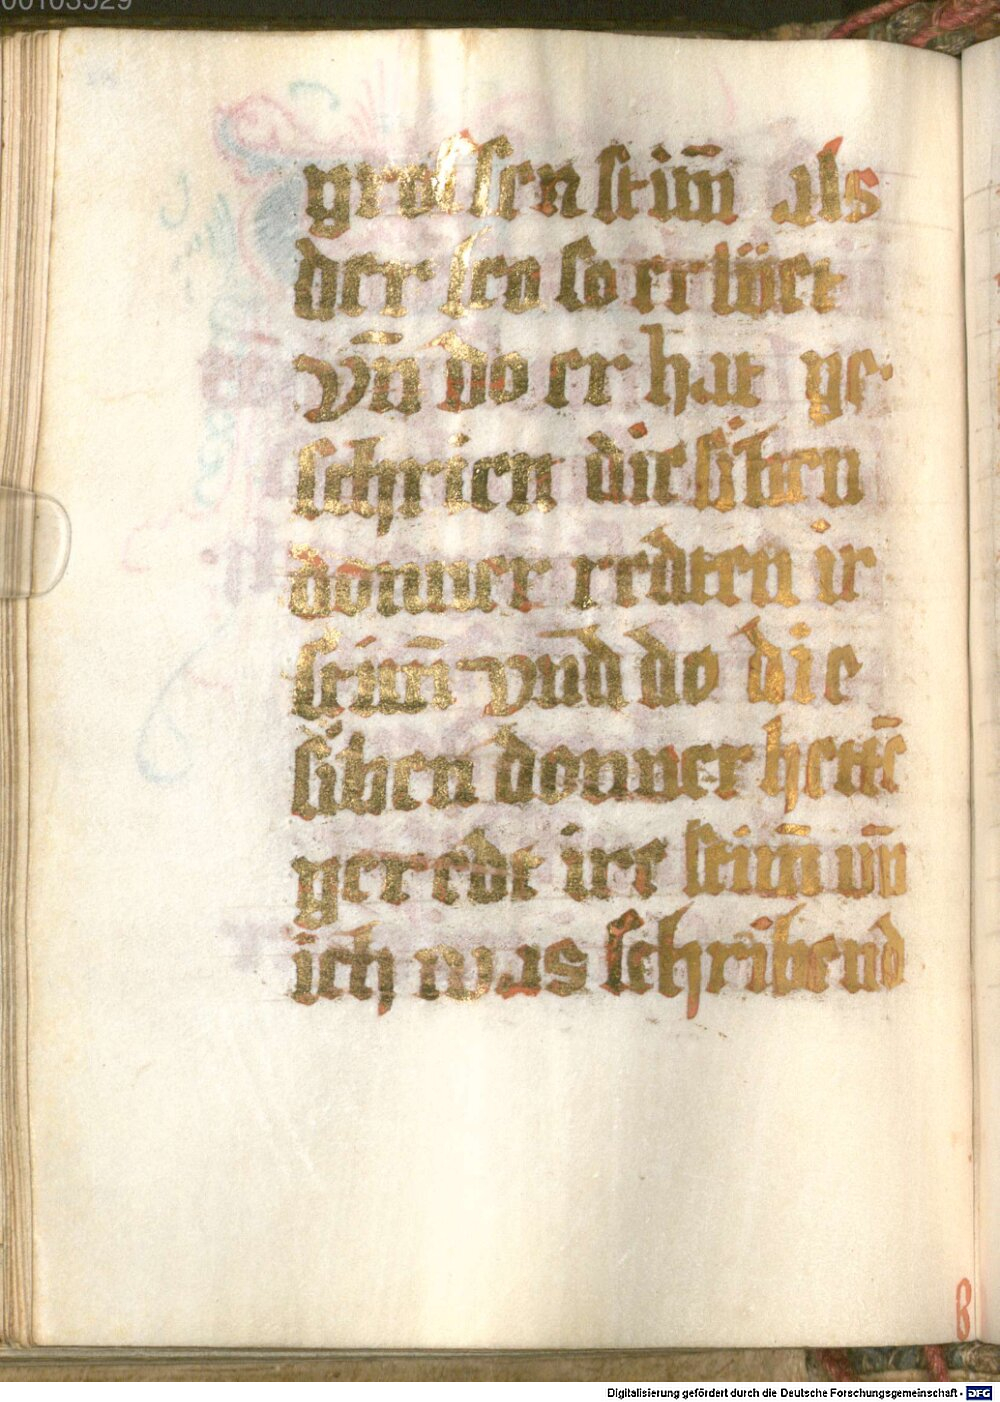 00103529
grossen stim̄ als
der leo so er lüet
vn̄ do er hat ge-
schrien die siben
donner redten ir
stim̄ vnd do die
siben donner hettē
geredt ire stim̄ vn̄
ich was schribend
B
Digitalisierung gefördert durch die Deutsche Forschungsgemeinschaft - DFG